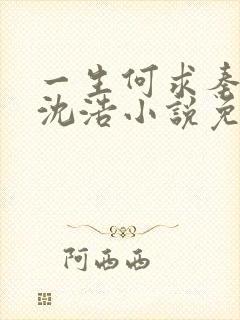 一生何求秦
沈浩小說免
阿西西